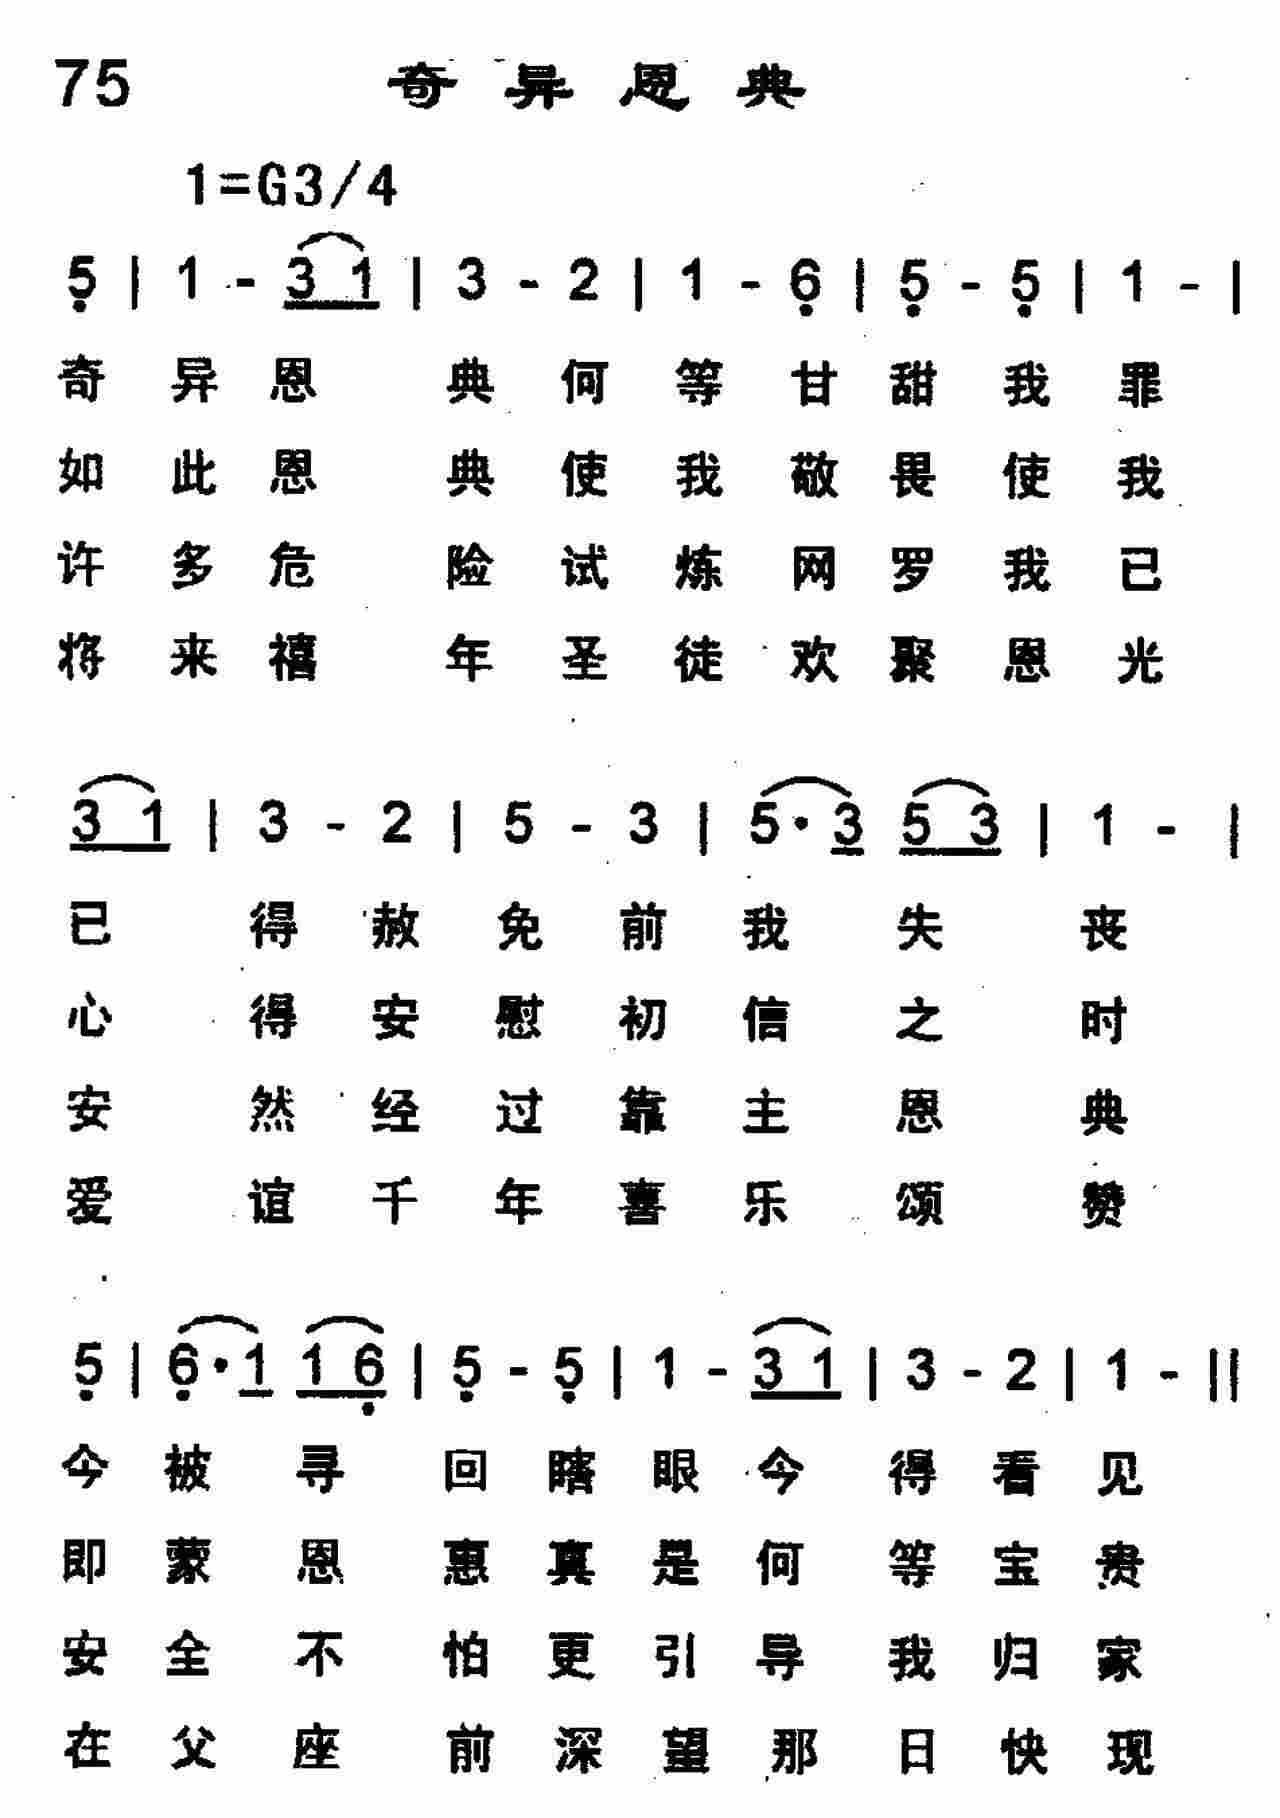 75 奇异恩典
1=G3/4
5̣ | 1 - 3 1 | 3 - 2 | 1 - 6̣ | 5̣ - 5̣ | 1 - |
奇异恩典何等甘甜我罪
如此恩典使我敬畏使我
许多危险试炼网罗我已
将来禧年圣徒欢聚恩光
3 1 | 3 - 2 | 5 - 3 | 5·3 5 3 | 1 - |
已得赦免前我失丧
心得安慰初信之时
安然经过靠主恩典
爱谊千年喜乐颂赞
5̣ | 6̣·1 1 6̣ | 5̣ - 5̣ | 1 - 3 1 | 3 - 2 | 1 - ||
今被寻回瞎眼今得看见
即蒙恩惠真是何等宝贵
安全不怕更引导我归家
在父座前深望那日快现